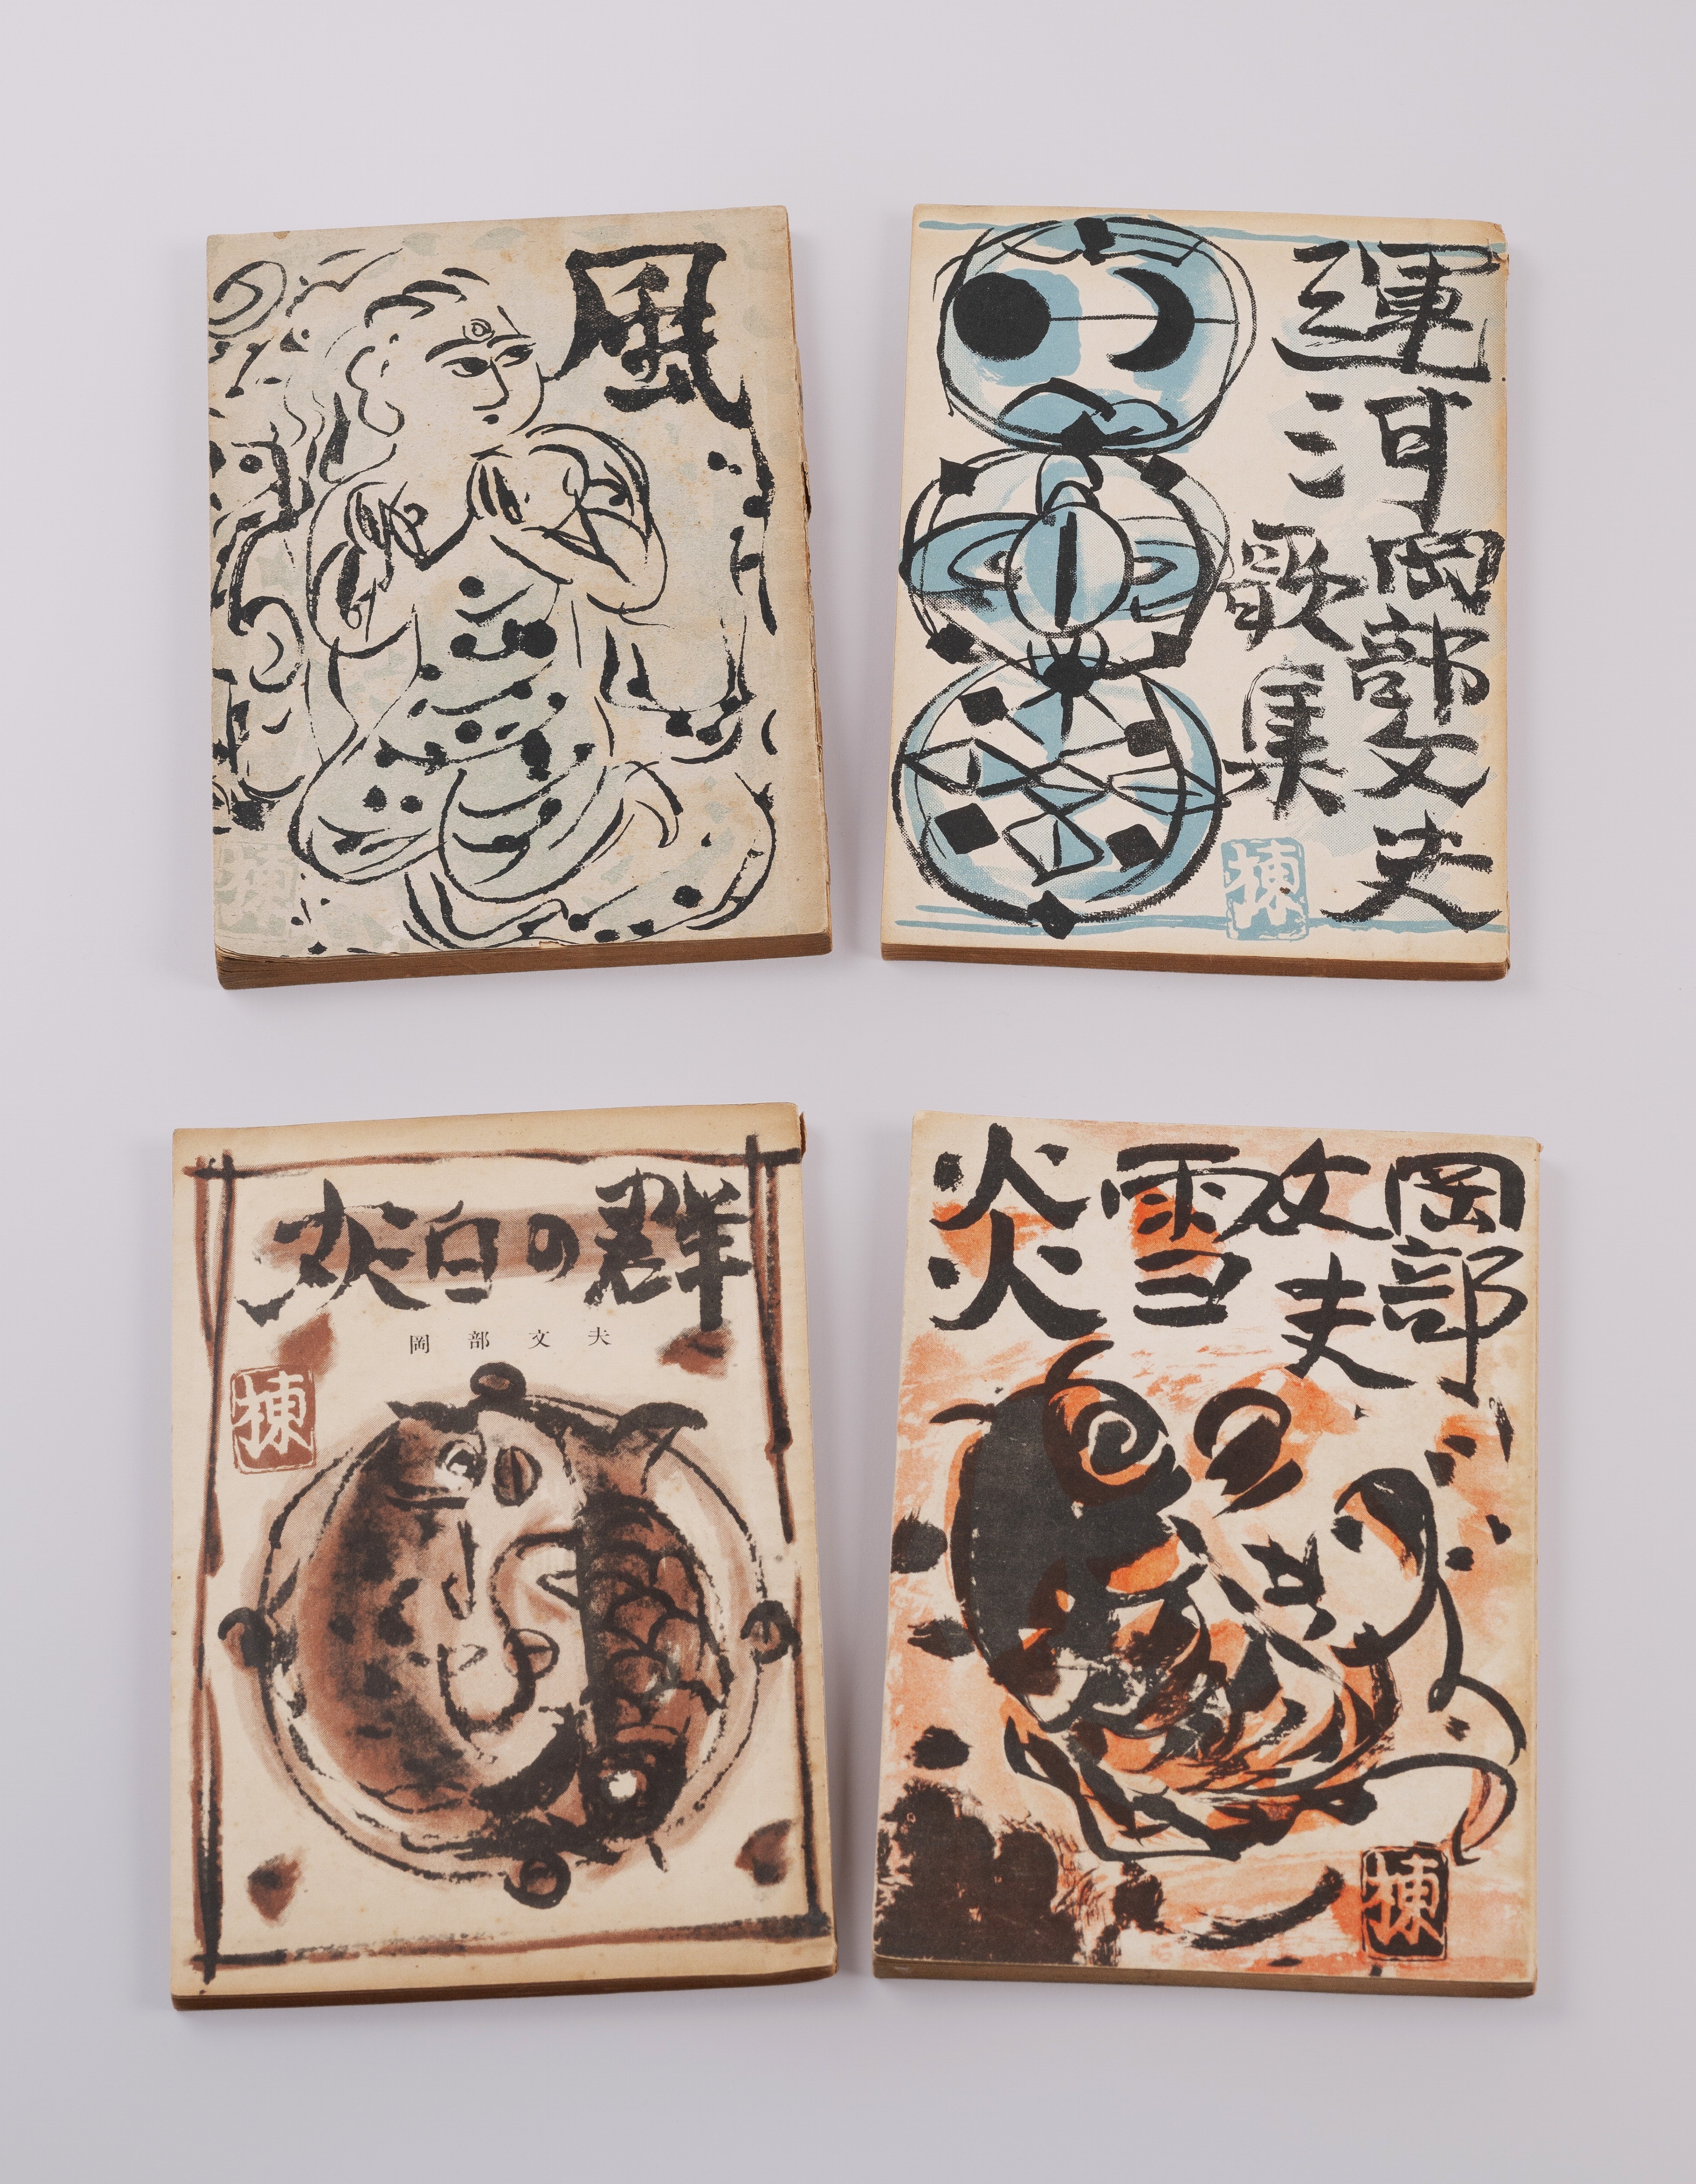 風
棟
運河
岡部文夫
歌集
棟
灰白の群
岡部文夫
棟
岡部
文夫
雪炎
棟